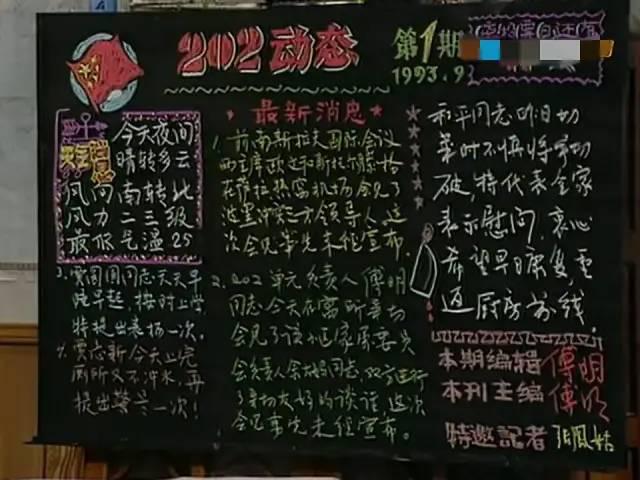 202动态
第1期
1993.9
今天夜间
晴转多云
风向南转北
风力二三级
最低气温25
最新消息
1.前南斯拉夫国际会议
两主席欧文和斯托尔滕格
在萨拉热窝机场会见了
波黑冲突三方领导人,这
次会见事先未经宣布.
2.202单元负责人傅明
同志今天在寓所
会见了该
会负责人余大妈同志,双方进行
了亲切友好的谈话,这次
会见事先未经宣布。
3.贾圆圆同志天天早
晚早起,按时上学
特提出表扬一次.
4.贾志新今天上完
厕所又不冲水,再
提出警告一次!
和平同志昨日切
菜时不慎将手切
破,特代表全家
表示慰问,衷心
希望早日康复,重
返厨房前线.
本期编辑 傅明
本刊主编 傅明
特邀記者 张凤姑